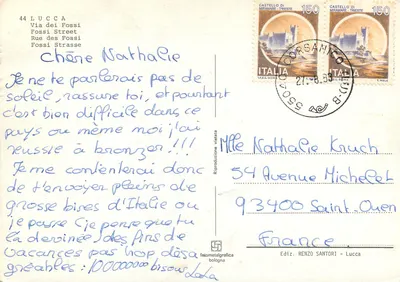 44 LUCCA
Via dei Fossi
Fossi Street
Rue des Fossi
Fossi Strasse
Chère Nathalie
Je ne te parlerais pas de
soleil, rassure toi, et pourtant
c'est bien difficile dans ce
pays ou même moi j'ai
reussie à bronzer!!!
Je me contenterai donc
de t'envoyer pleins de
grosse bises d'Italie ou
je passe (je pense que tu
l'a devinée) des fins de
vacances pas trop désa
gréables! 10000000 bisous Lola
CASTELLO DI
MIRAMARE - TRIESTE
150
ITALIA
CASTELLO DI
MIRAMARE - TRIESTE
150
ITALIA
27.-8.83
Riproduzione vietata
fotometalgrafica
bologna
Mlle Nathalie Kruch
54 Avenue Michelet
93400 Saint.Ouen
France
Ediz. RENZO SANTORI - Lucca